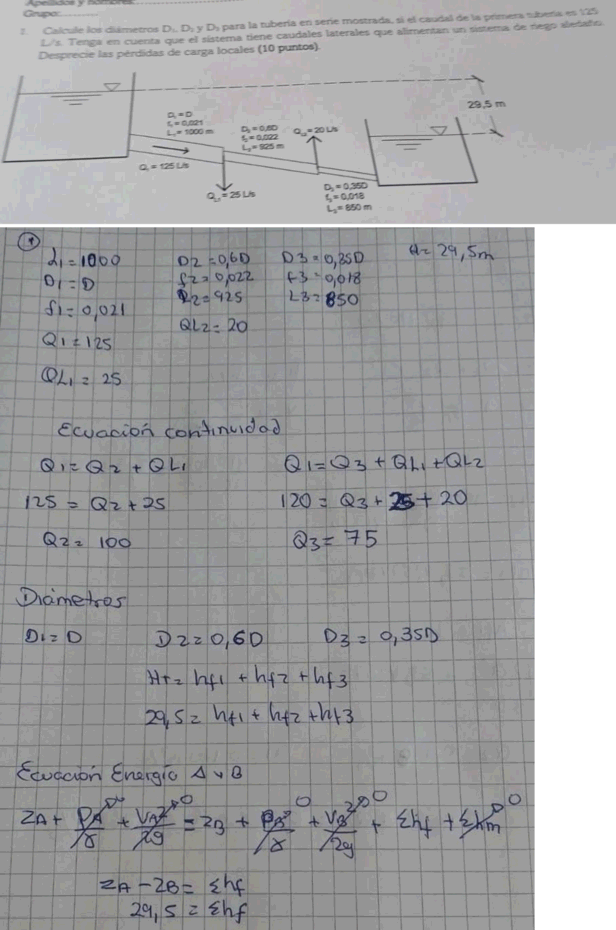 Apellidos y nombres:
Grupo:
2. Calcule los diámetros D₁, D₂ y D₃ para la tubería en serie mostrada, si el caudal de la primera tubería es 125
L/s. Tenga en cuenta que el sistema tiene caudales laterales que alimentan un sistema de riego aledaño.
Desprecie las pérdidas de carga locales (10 puntos).
29,5 m
D₁ = D
f₁ = 0,021
L₁ = 1000 m
D₂ = 0,6D
f₂ = 0,022
L₂ = 925 m
Q_L2 = 20 L/s
Q₁ = 125 L/s
Q_L1 = 25 L/s
D₃ = 0,35D
f₃ = 0,018
L₃ = 850 m
①
L1 = 1000 D2 = 0,6D D3 = 0,35D H = 29,5m
D1 = D f2 = 0,022 f3 = 0,018
f1 = 0,021 L2 = 925 L3 = 850
Q1 = 125 QL2 = 20
QL1 = 25
Ecuación continuidad
Q1 = Q2 + QL1 Q1 = Q3 + QL1 + QL2
125 = Q2 + 25 120 = Q3 + 25 + 20
Q2 = 100 Q3 = 75
Diámetros
D1 = D D2 = 0,6D D3 = 0,35D
HT = hf1 + hf2 + hf3
29,5 = hf1 + hf2 + hf3
Ecuación Energía A y B
ZA + PA/γ + VA²/2g = ZB + PB/γ + VB²/2g + Σhf + Σhm
ZA - ZB = Σhf
29,5 = Σhf